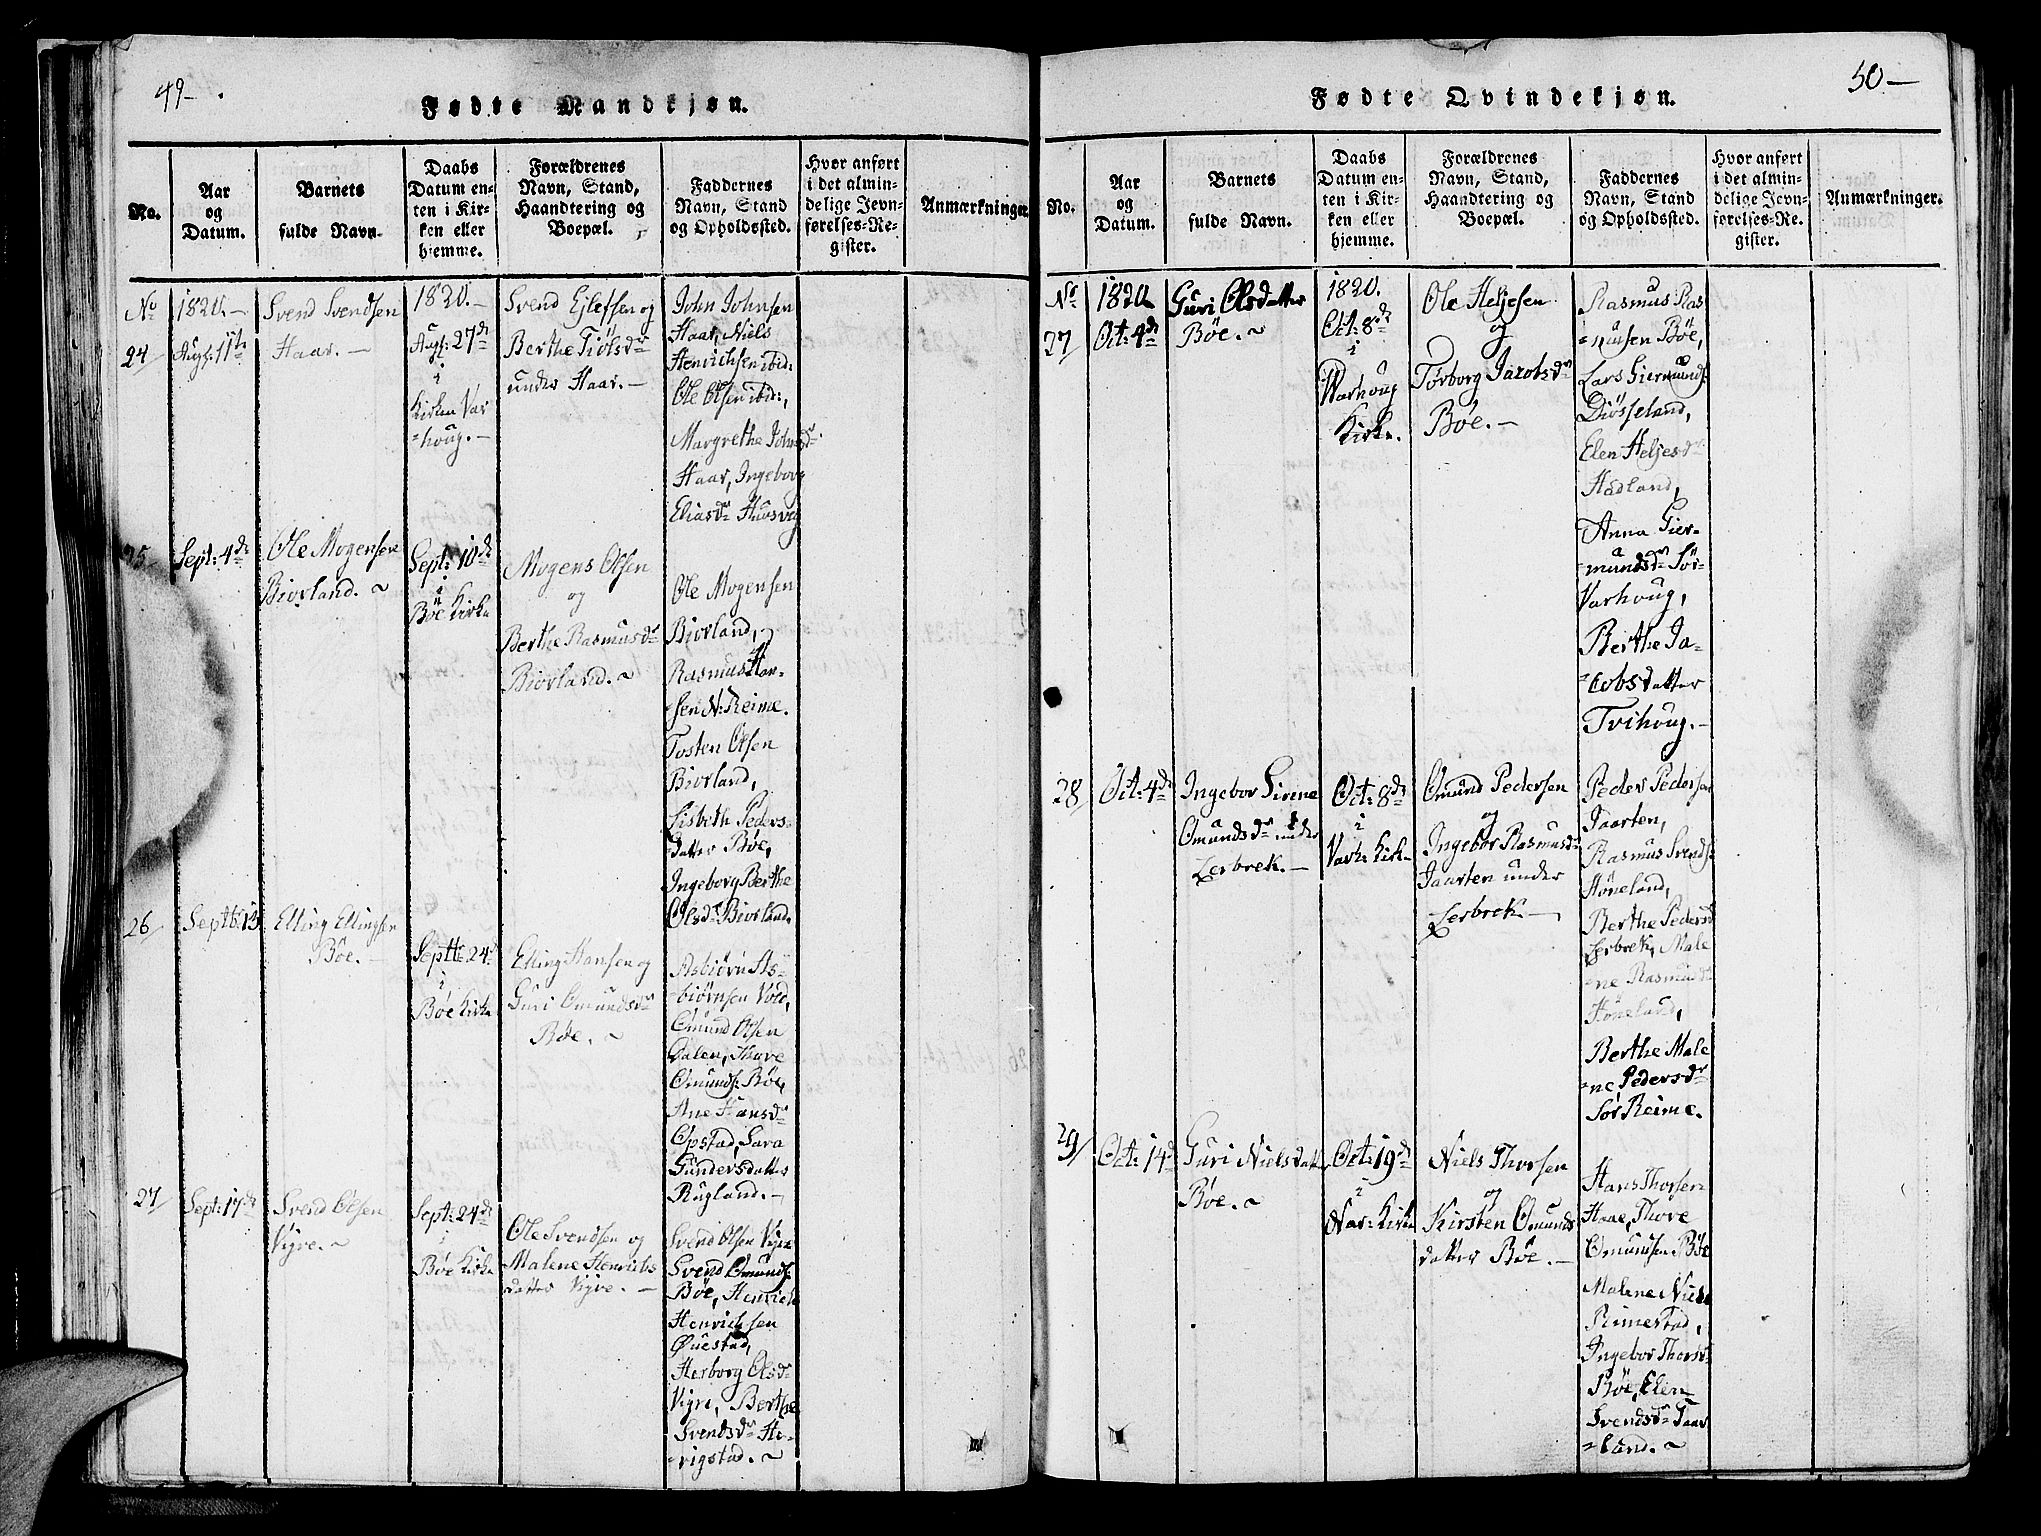 49-
Fødte Mandkjøn.
No.
Aar
og
Datum.
Barnets
fulde Navn.
Daabs
Datum en-
ten i Kir-
ken eller
hjemme.
Forældrenes
Navn, Stand,
Haandtering og
Boepæl.
Faddernes
Navn, Stand
og Opholdssted.
Hvor anført
i det almin-
delige Jevn-
førelses-Re-
gister.
Anmærkninger.
No
24/
1820.-
Augs: 11te
Svend Svendsen
Haar.-
1820.-
Augs: 27de
i
Kirken Var
=houg.-
Svend Ejlefsen og
Berthe Tiölsdr
under Haar.-
John Johnsen
Haar, Niels
Henrichsen ibid:
Ole Olsen ibid:,
Margrethe Johnsdr
Haar, Ingeborg
Eliasdr Huusveg
25
Sept: 4de
Ole Mogensen
Biorland.~
Sept: 10de
i
Böe Kirke
Mogens Olsen
og
Berthe Rasmusdr
Biorland.~
Ole Mogensen
Biorland,
Rasmus Han-
sen N: Reime.
Tosten Olsen
Biorland,
Lisbeth Peders-
datter Böe,
Ingeborg Berthe
Olsdr Biorland.
26/
Septb: 13
Elling Ellingsen
Böe.-
Septb: 24de
i
Böe Kirke
Elling Hansen og
Guri Omundsdr
Böe.~
Asbiörn As-
biörnsen Vold,
Omund Olsen
Dalen, Thore
Omunds: Böe,
Ane Hansdr
Opstad, Sara
Gundersdatter
Rugland.-
27/
Sept: 17de
Svend Olsen
Vigre.~
Sept: 24de
i
Böe Kirke
Ole Svendsen og
Malene Henrichs
datter Vigre.-
Svend Olsen Vigre
Svend Omunds:
Böe, Henrich
Henrichsen
Øuestad,
Herborg Olsdr
Vigre, Berthe
Svendsdr He-
=rigstad.~
50-
Fødte Qvindekjøn.
No.
Aar
og
Datum.
Barnets
fulde Navn.
Daabs
Datum en-
ten i Kir-
ken eller
hjemme.
Forældrenes
Navn, Stand,
Haandtering og
Boepæl.
Faddernes
Navn, Stand
og Opholdssted.
Hvor anført
i det almin-
delige Jevn-
førelses-Re-
gister.
Anmærkninger.
No
27/
1820
Oct: 4de
Guri Olsdatter
Böe.~
1820.
Oct: 8de
i
Warhoug
Kirke.
Ole Heljesen
og
Torborg Jacobsdr
Böe.-
Rasmus Ras
=musen Böe,
Lars Giermunds:
Diösseland,
Elen Heljesdr
Hadland,
Anna Gier-
=mundsdr Sör-
Varhoug,
Berthe Ja-
=cobsdatter
Tvihoug.-
28/
Oct: 4de
Ingebor Sirine
Omundsdr under
Lerbrek.-
Oct: 8de
i
Varh: Kirke
Omund Pedersen
og
Ingebor Rasmusdr
Jaarten under
Lerbrek.-
Peder Pedersen
Jaarten,
Rasmus Svends:
Höneland,
Berthe Pedersd
Lerbrek, Male
=ne Rasmusdr
Höneland,
Berthe Male
=ne Pedersdr
Sör Reime.
29/
Oct: 14de
Guri Nielsdatter
Böe.~
Oct: 19de
i
Nar: Kirke
Niels Thorsen
og
Kirsten Omunds
datter Böe.-
Hans Thorsen
Haae, Thore
Omundsen Böe
Malene Niels
Rimestad,
Ingebor Thorsdr
Böe, Elen
Svendsdr Taar
=land.~